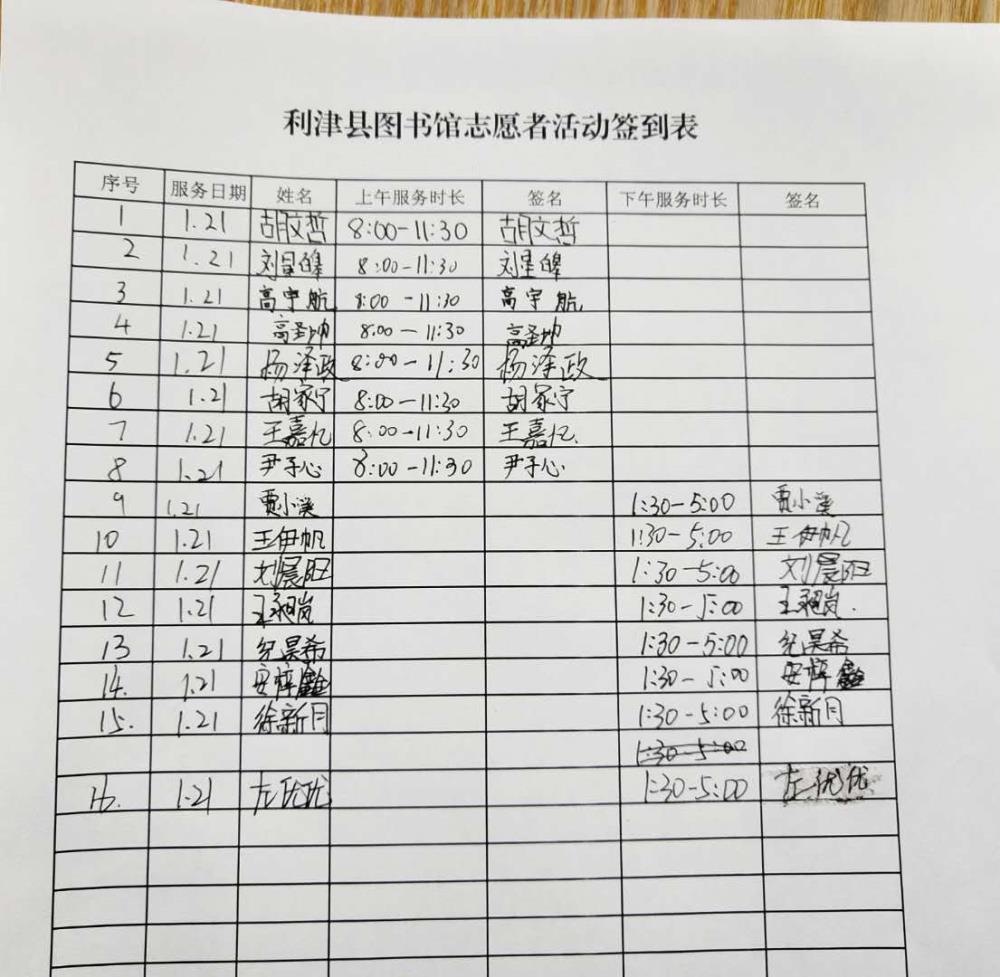 利津县图书馆志愿者活动签到表
序号 服务日期 姓名 上午服务时长 签名 下午服务时长 签名
1 1.21 胡文哲 8:00-11:30 胡文哲
2 1.21 刘星皞 8:00-11:30 刘星皞
3 1.21 高宇航 8:00-11:30 高宇航
4 1.21 高圣坤 8:00-11:30 高圣坤
5 1.21 杨泽政 8:00-11:30 杨泽政
6 1.21 胡家宁 8:00-11:30 胡家宁
7 1.21 王嘉忆 8:00-11:30 王嘉忆
8 1.21 尹子心 8:00-11:30 尹子心
9 1.21 贾小溪 1:30-5:00 贾小溪
10 1.21 王伊帆 1:30-5:00 王伊帆
11 1.21 刘晨旺 1:30-5:00 刘晨旺
12 1.21 1:30-5:00
13 1.21 纪昊希 1:30-5:00 纪昊希
14. 1.21 安梓鑫 1:30-5:00 安梓鑫
15. 1.21 徐新月 1:30-5:00 徐新月
1:30-5:00
16. 1.21 左优优 1:30-5:00 左优优